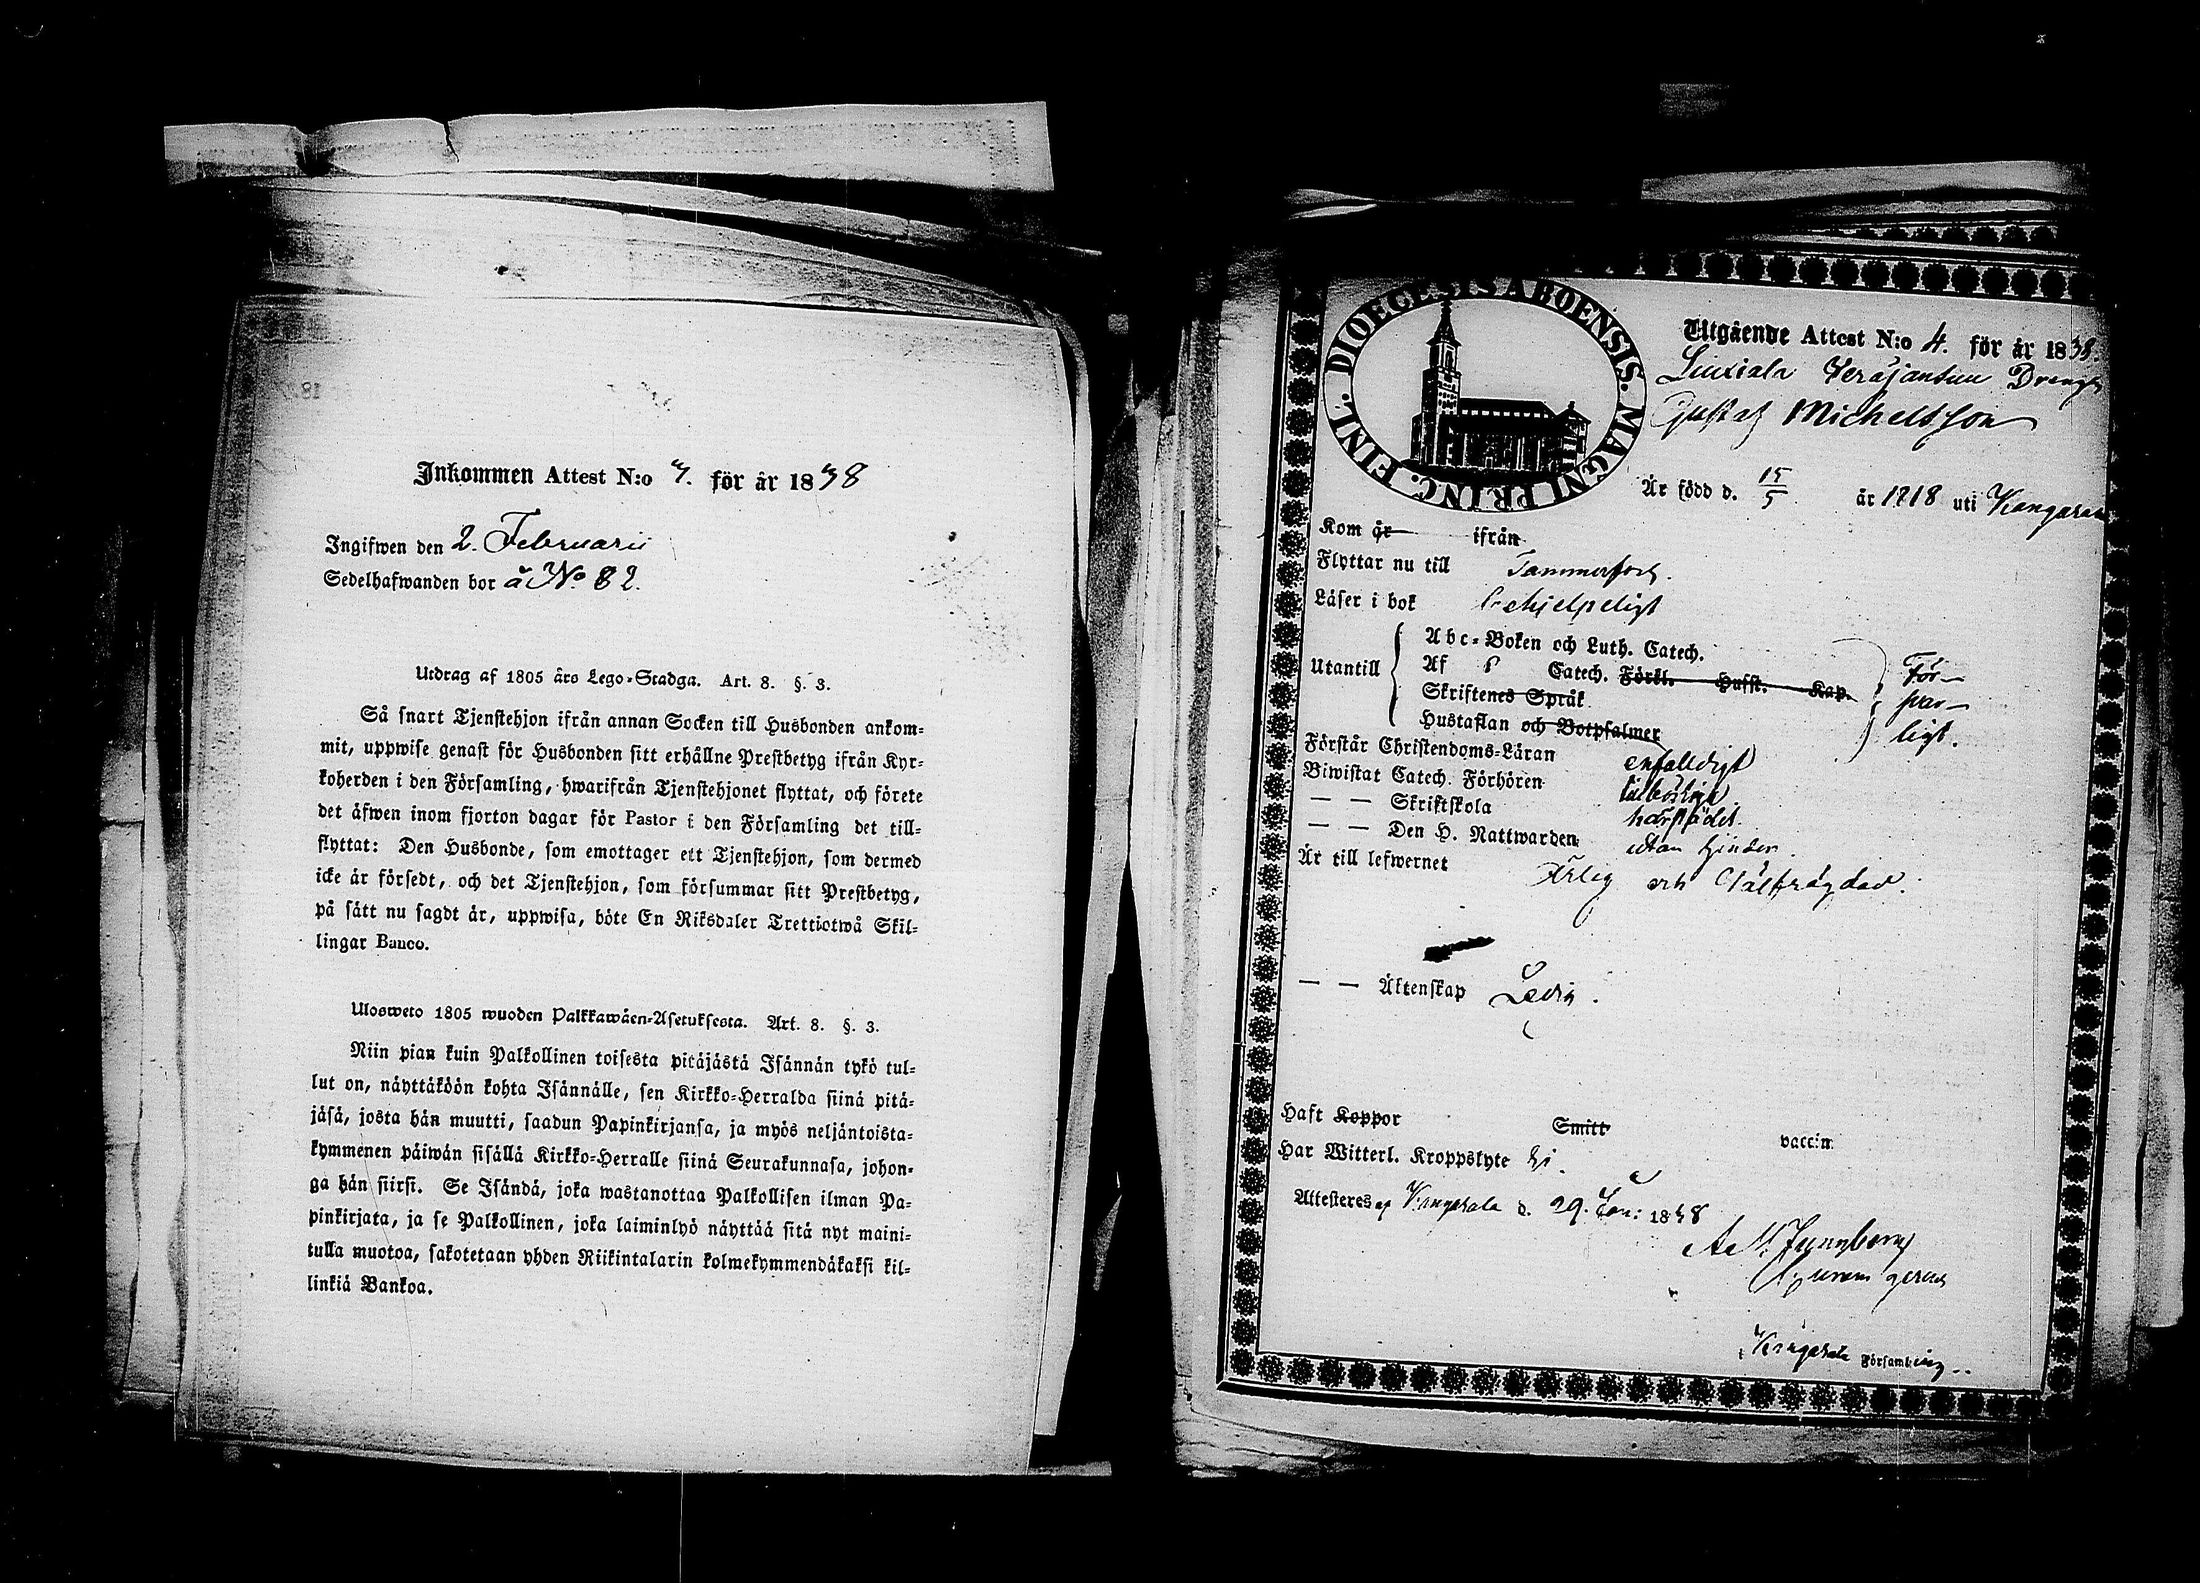 Inkommen Attest N:o 7. för år 1838
Ingifwen den 2. Februarii
Sedelhafwanden bor å No 82.
Utdrag af 1805 års Lego-Stadga. Art. 8. §. 3.
Så snart Tjenstehjon ifrån annan Socken till Husbonden ankom-
mit, uppwise genast för Husbonden sitt erhållne Prestbetyg ifrån Kyr-
koherden i den Församling, hwarifrån Tjenstehjonet flyttat, och förete
det äfwen inom fjorton dagar för Pastor i den Församling det till-
flyttat: Den Husbonde, som emottager ett Tjenstehjon, som dermed
icke är försedt, och det Tjenstehjon, som försummar sitt Prestbetyg,
på sätt nu sagdt är, uppwisa, böte En Riksdaler Trettiotwå Skil-
lingar Banco.
Ulosweto 1805 wuoden Palkkawäen-Asetuksesta. Art. 8. §. 3.
Niin pian kuin Palkollinen toisesta pitäjästä Isännän tykö tul-
lut on, näyttäköön kohta Isännälle, sen Kirkko-Herralda siinä pitä-
jäsä, josta hän muutti, saadun Papinkirjansa, ja myös neljäntoista-
kymmenen päiwän sisällä Kirkko-Herralle siinä Seurakunnasa, johon-
ga hän siirsi. Se Isändä, joka wastanottaa Palkollisen ilman Pa-
pinkirjata, ja se Palkollinen, joka laiminlyö näyttää sitä nyt maini-
tulla muotoa, sakotetaan yhden Riikintalarin kolmekymmendäkaksi kil-
linkiä Bankoa.
DIOECESIS ABOENSIS. MAGNI PRINC. FINL.
Utgående Attest N:o 4. för år 1838.
Liuxiala Dreng
Gustaf Michelsson
Är född d. 15/5 år 1818 uti Kangasala
Kom år ifrån
Flyttar nu till Tammerfors.
Läser i bok behjelpeligt
Utantill
Abc-Boken och Luth. Catech.
Af Catech. Förkl. Husst. Kap.
Skriftenes Språk
Hustaflan och Botpsalmer
För-
svar-
ligt.
Förstår Christendoms-Läran enfalldigt
Biwistat Catech. Förhören
— — Skriftskola härstädes.
— — Den H. Nattwarden utan hinder.
Är till lefwernet Ärlig och Välfrägdad.
— — Äktenskap Ledig.
Haft Koppor Smitt vaccin
Har Witterl. Kroppslyte Ej.
Attesteres af Kangasala d. 29. Jan: 1838
Kangasala Församling..